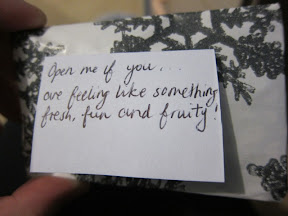 Open me if you...
are feeling like something
fresh, fun and fruity!